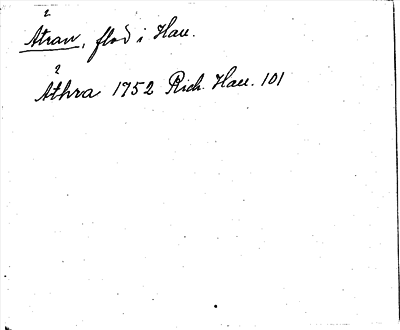 Ätran, flod i Hall.
Äthra 1752 Rich. Hall. 101